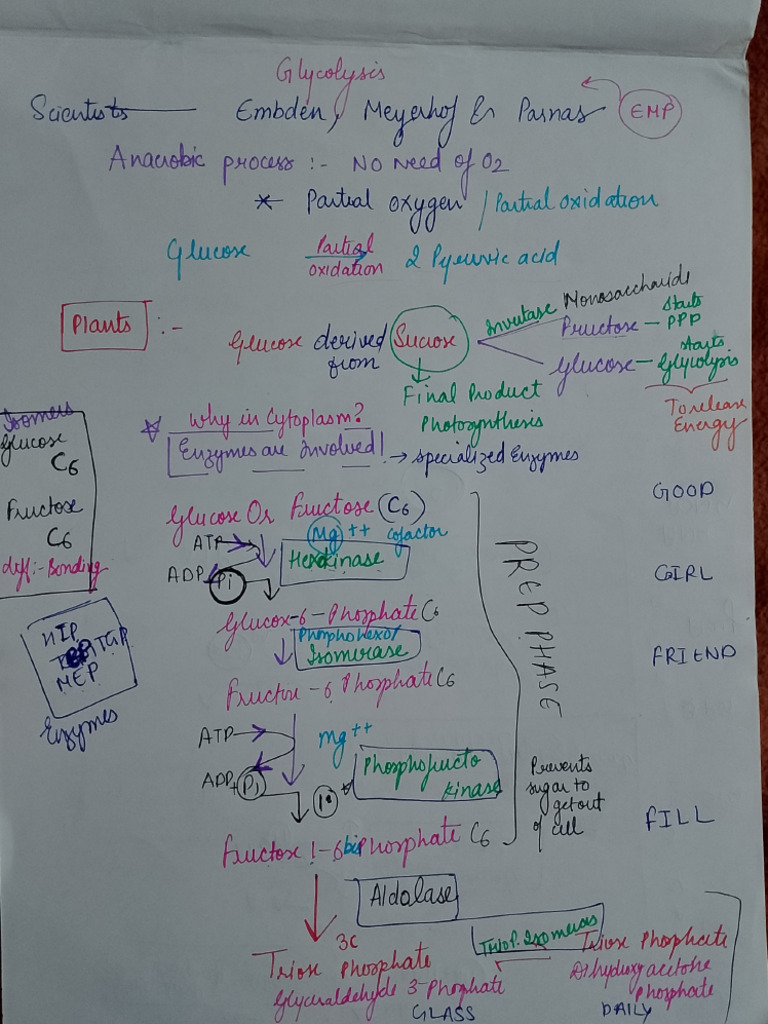 Glycolysis
Scientists — Embden, Meyerhof & Parnas EMP
Anaerobic process :- No Need of O2
* Partial oxygen / Partial oxidation
Glucose Partial oxidation 2 Pyruvic acid
Plants :- Glucose derived from Sucrose
Invertase Monosaccharids
Fructose — Starts PPP
Glucose — Starts Glycolysis
To release Energy
Final Product Photosynthesis
Isomers
Glucose
C6
Fructose
C6
diff:- Bonding
Why in Cytoplasm?
Enzymes are Involved! → Specialized Enzymes
Glucose Or Fructose (C6)
ATP Mg++ cofactor
ADP Pi Hexokinase
Glucose-6-Phosphate C6
Phosphohexos
Isomerase
Fructose-6 Phosphate C6
ATP Mg++
ADP + Pi Phosphofructo
kinase
10
Fructose 1-6 bisPhosphate C6
PREP PHASE
Prevents
sugar to
get out
of cell
HIP
MEP
Enzymes
GOOD
GIRL
FRIEND
FILL
Aldolase
3C
Triose Phosphate
Glyceraldehyde 3-Phosphate
GLASS
TrioP. Isomeras
Triose Phosphate
Dihydroxyacetone
Phosphate
DAILY